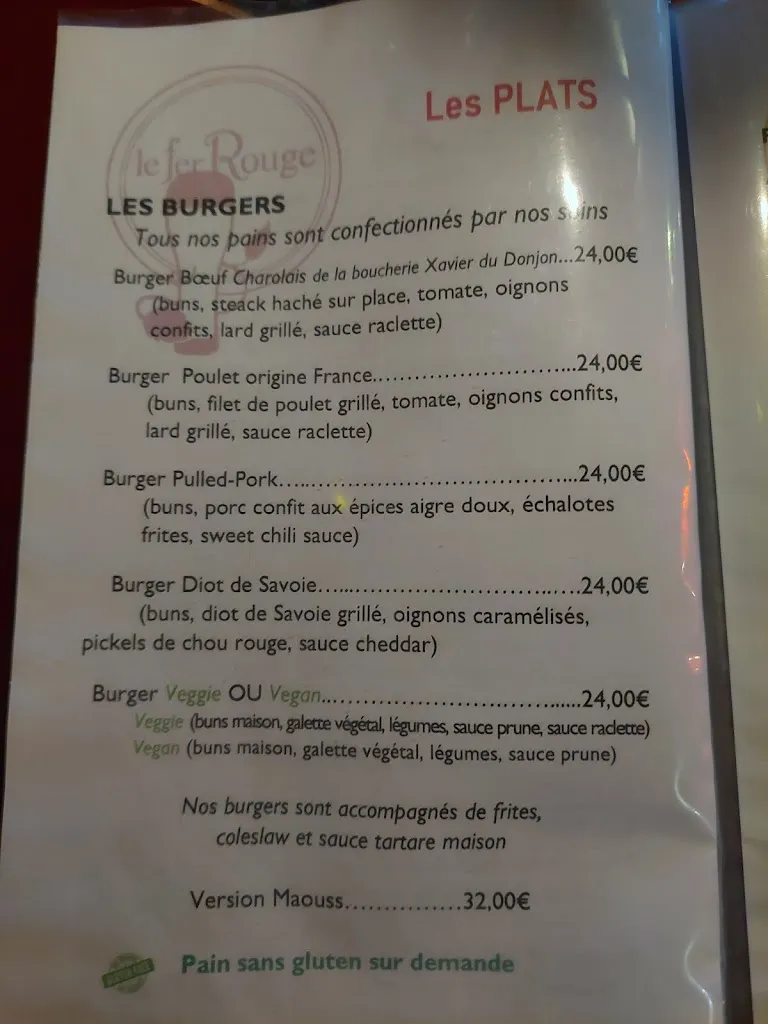 Les PLATS
le fer Rouge
LES BURGERS
Tous nos pains sont confectionnés par nos soins
Burger Bœuf Charolais de la boucherie Xavier du Donjon...24,00€
(buns, steack haché sur place, tomate, oignons
confits, lard grillé, sauce raclette)
Burger Poulet origine France..............................24,00€
(buns, filet de poulet grillé, tomate, oignons confits,
lard grillé, sauce raclette)
Burger Pulled-Pork..........................................24,00€
(buns, porc confit aux épices aigre doux, échalotes
frites, sweet chili sauce)
Burger Diot de Savoie.....................................24,00€
(buns, diot de Savoie grillé, oignons caramélisés,
pickels de chou rouge, sauce cheddar)
Burger Veggie OU Vegan....................................24,00€
Veggie (buns maison, galette végétal, légumes, sauce prune, sauce raclette)
Vegan (buns maison, galette végétal, légumes, sauce prune)
Nos burgers sont accompagnés de frites,
coleslaw et sauce tartare maison
Version Maouss................32,00€
Pain sans gluten sur demande